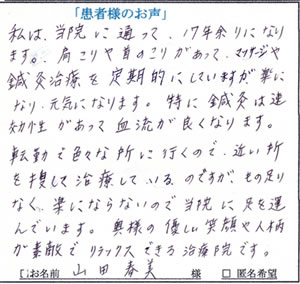 「患者様のお声」
私は、当院に通って、17年余りになり
ます。肩こりや首のこりがあって、マッサージや
鍼灸治療を定期的にしていますが楽に
なり、元気になります。特に鍼灸は速
効性があって血流が良くなります。
転勤で色々な所に行くので、近い所
を捜して治療しているのですが、もの足り
なく、楽にならないので当院に足を運
んでいます。奥様の優しい笑顔や人柄
が素敵でリラックスできる治療院です。
お名前 山田春美 様 □ 匿名希望